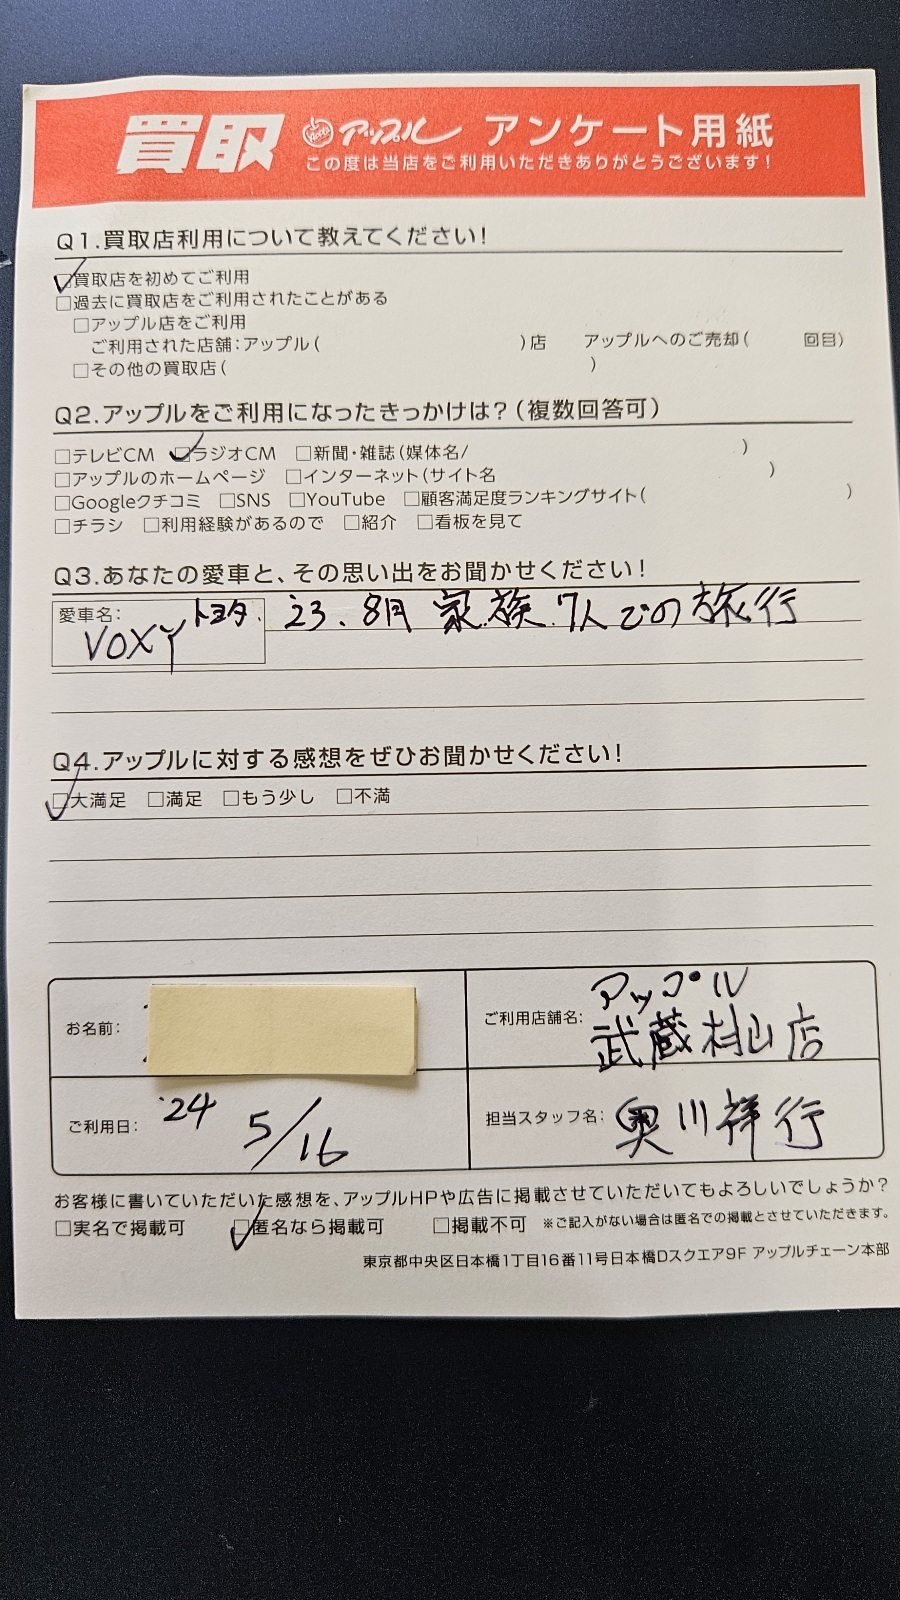 買取 アップル アンケート用紙
この度は当店をご利用いただきありがとうございます!
Q1.買取店利用について教えてください!
☑買取店を初めてご利用
□過去に買取店をご利用されたことがある
□アップル店をご利用
ご利用された店舗:アップル( )店 アップルへのご売却( 回目)
□その他の買取店( )
Q2.アップルをご利用になったきっかけは?(複数回答可)
□テレビCM ☑ラジオCM □新聞・雑誌(媒体名/ )
□アップルのホームページ □インターネット(サイト名 )
□Googleクチコミ □SNS □YouTube □顧客満足度ランキングサイト( )
□チラシ □利用経験があるので □紹介 □看板を見て
Q3.あなたの愛車と、その思い出をお聞かせください!
愛車名: トヨタ VOXY
23.8月 家族7人での旅行
Q4.アップルに対する感想をぜひお聞かせください!
☑大満足 □満足 □もう少し □不満
お名前:
ご利用店舗名: アップル
武蔵村山店
ご利用日: '24 5/16
担当スタッフ名: 奥川祥行
お客様に書いていただいた感想を、アップルHPや広告に掲載させていただいてもよろしいでしょうか?
□実名で掲載可 ☑匿名なら掲載可 □掲載不可 ※ご記入がない場合は匿名での掲載とさせていただきます。
東京都中央区日本橋1丁目16番11号日本橋Dスクエア9F アップルチェーン本部